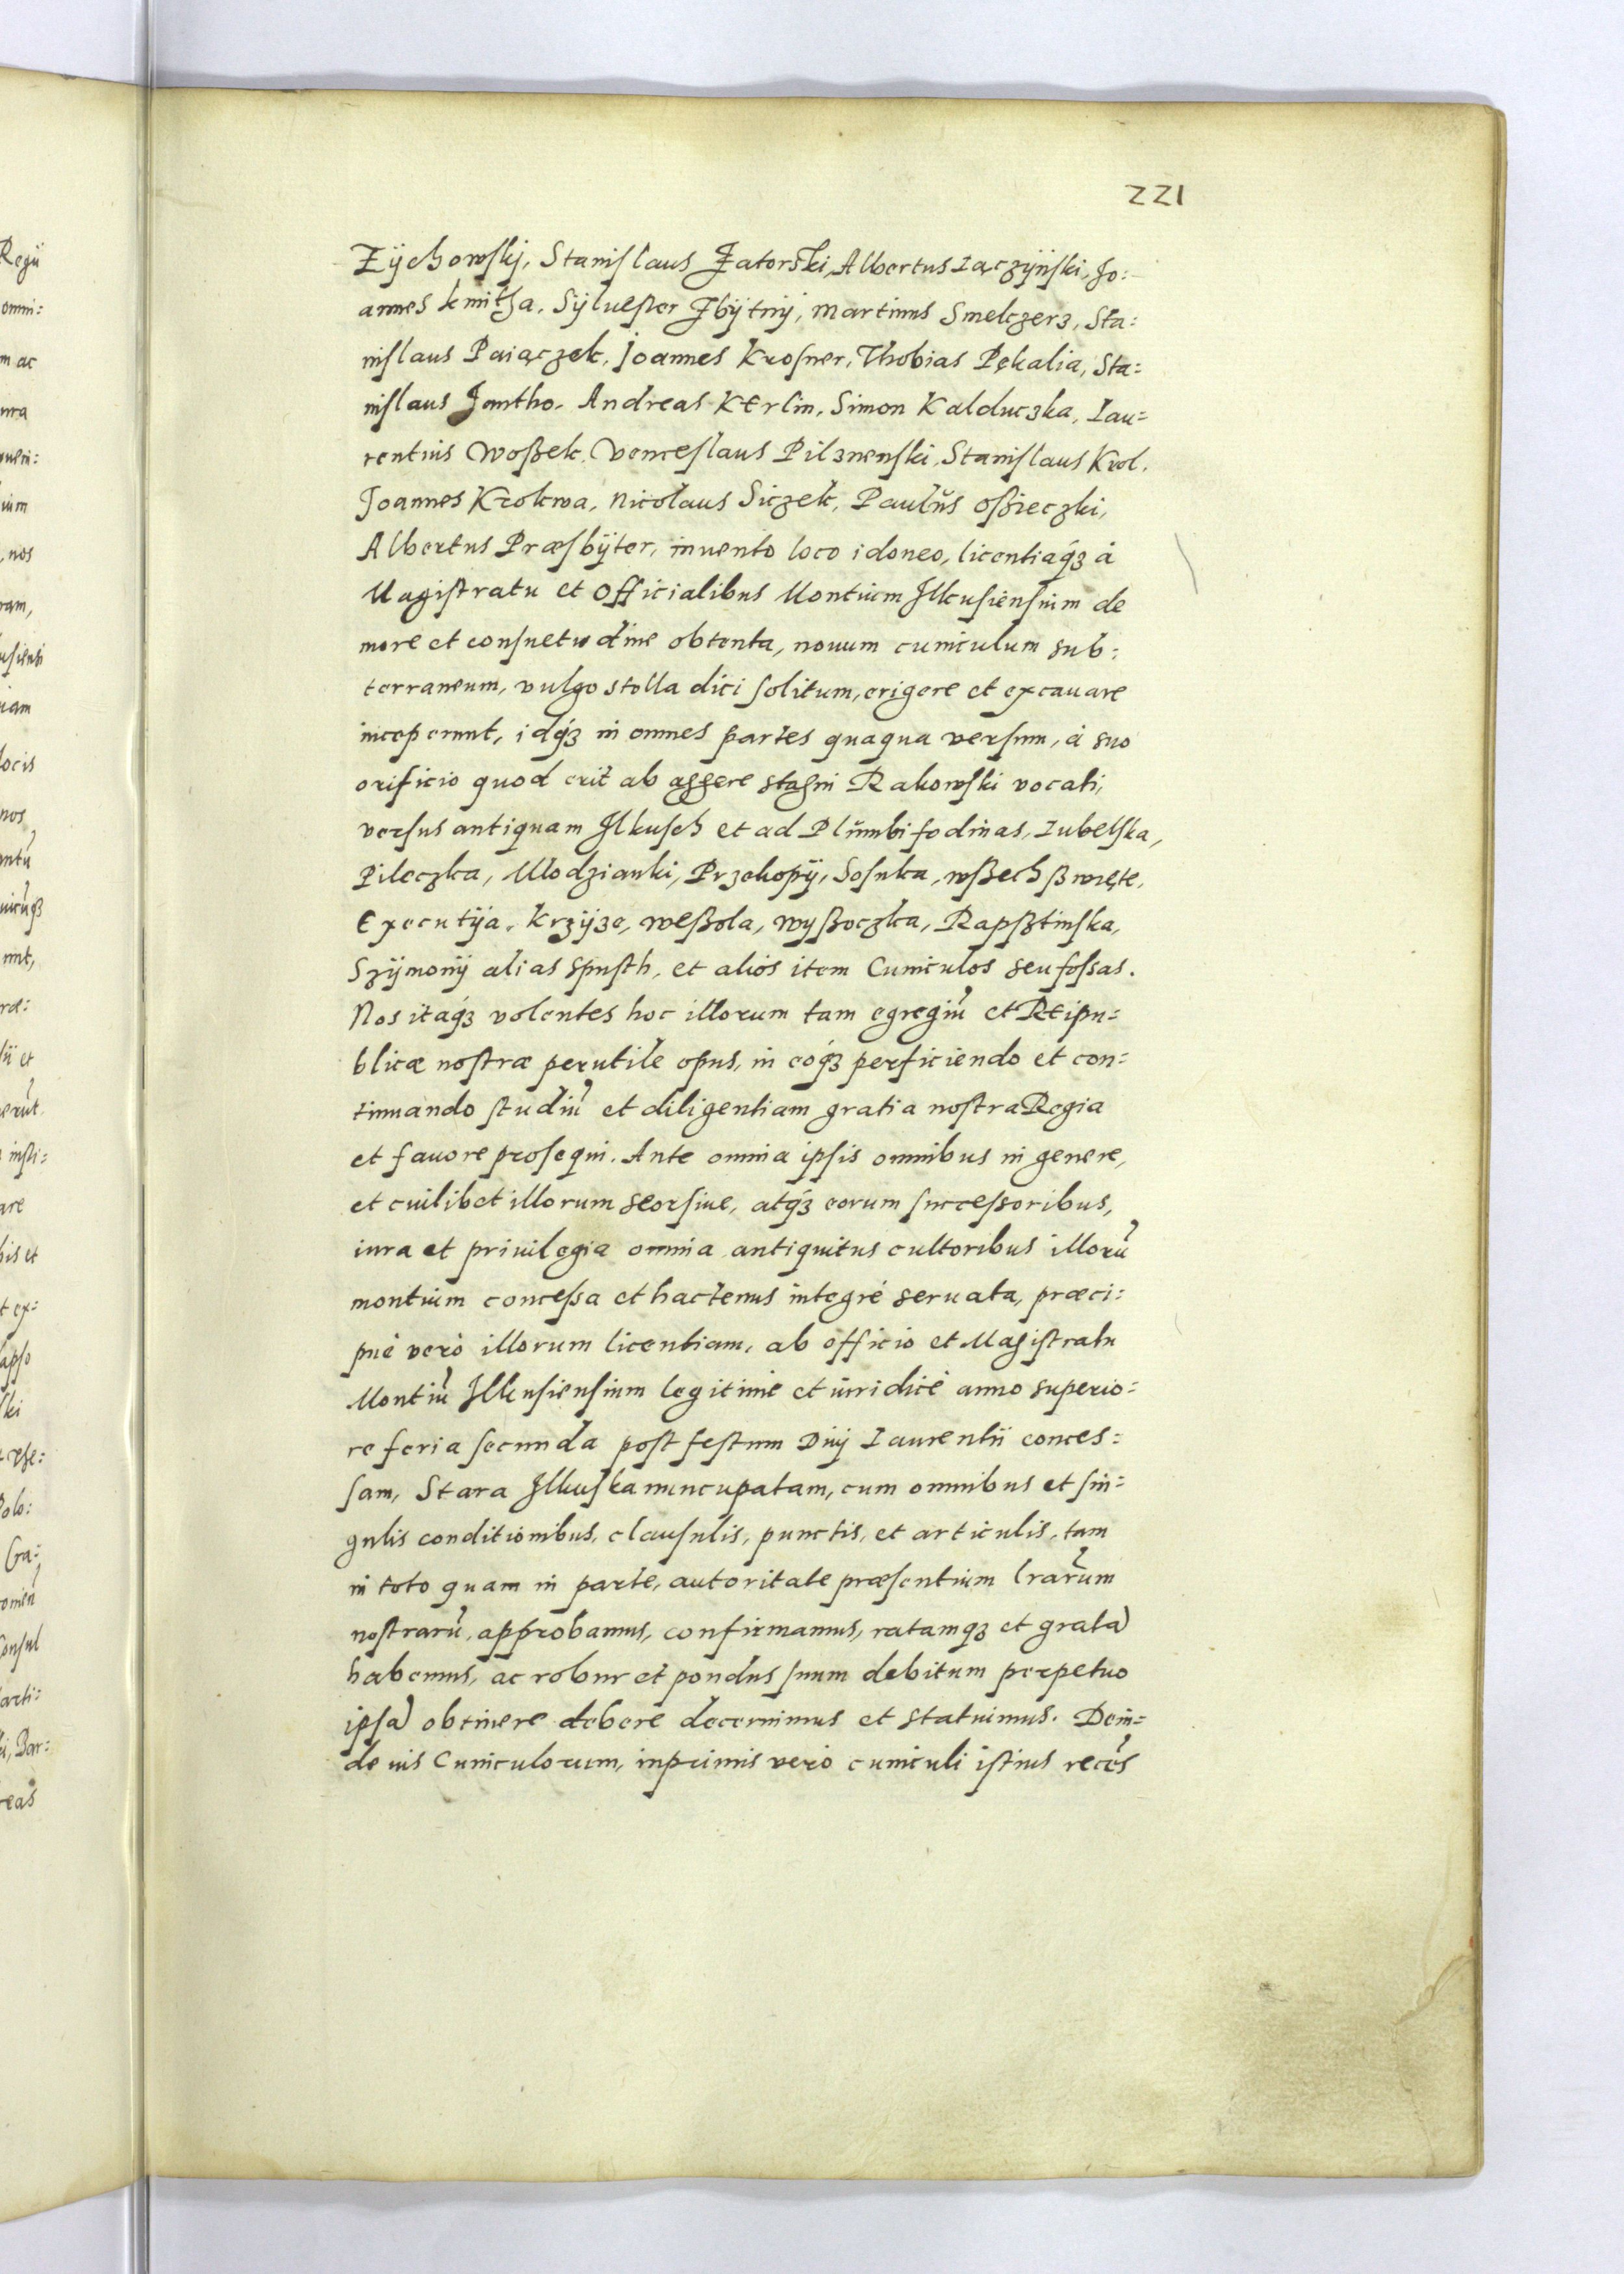 221
Zÿchowskj, Stanislaus Zatorski, Albertus Lączÿnski, Jo:
annes kmitha, Sÿluester Zbÿtnÿ, Martinus Smelczerz, Sta:
nislaus Paiączek, Joannes Krosner, Thobias Pękalia, Sta:
nislaus Jontho, Andreas Kerlin, Simon Kalduczka, Lau=
rentius Woßek, Venceslaus Pilznenski, Stanislaus Krol,
Joannes Krokwa, Nicolaus Siczek, Paulus Oßieczki,
Albertus Præsbÿter, inuento loco idoneo, licentiaq́ꝫ à
Magistratu et Officialibus Montium Ilkusiensium de
more et consuetudine obtenta, nouum cuniculum sub:
terraneum, vulgo stolla dici solitum, erigere et excauare
inceperunt, idq́ꝫ in omnes partes quaqua versum, à suo
orificio quod erit ab aggere stagni Rakowski vocati,
versus antiquam Ilkusch et ad Plumbifodinas, Lubelska,
Pileczka, Mlodzianki, Przekopÿ, Sosnka, wßech ßwięte,
Executÿa, krzÿze, weßola, wyßoczka, Rapßtinska,
Szÿmonÿ alias spusth, et alios item Cuniculos seu fossas.
Nos itaq́ꝫ volentes hoc illorum tam egregiũ et Reipu=
blicæ nostræ perutile opus, in eoq́ꝫ perficiendo et con=
tinuando studiũ et diligentiam gratia nostra Regia
et fauore prosequi. Ante omnia ipsis omnibus in genere,
et cuilibet illorum seorsiue, atq́ꝫ eorum successoribus,
iura et priuilegia omnia antiquitus cultoribus illorũ
montium concessa et hactenus integrè seruata, præci:
puè verò illorum licentiam, ab officio et Magistratu
Montiũ Ilkusiensium legitimè et iuridicè anno superio=
re feria secunda post festum Diuj Laurentii conces=
sam, Stara Ilkuska nuncupatam, cum omnibus et sin=
gulis conditionibus, clausulis, punctis, et articulis, tam
in toto quam in parte, autoritate præsentium lrarum
nostrarũ, approbamus, confirmamus, ratamqꝫ et gratã
habemus, ac robur et pondus suum debitum perpetuo
ipsã obtinere debere decernimus et statuimus. Dein=
de uis Cuniculorum, inprimis verò cuniculi istius recẽs